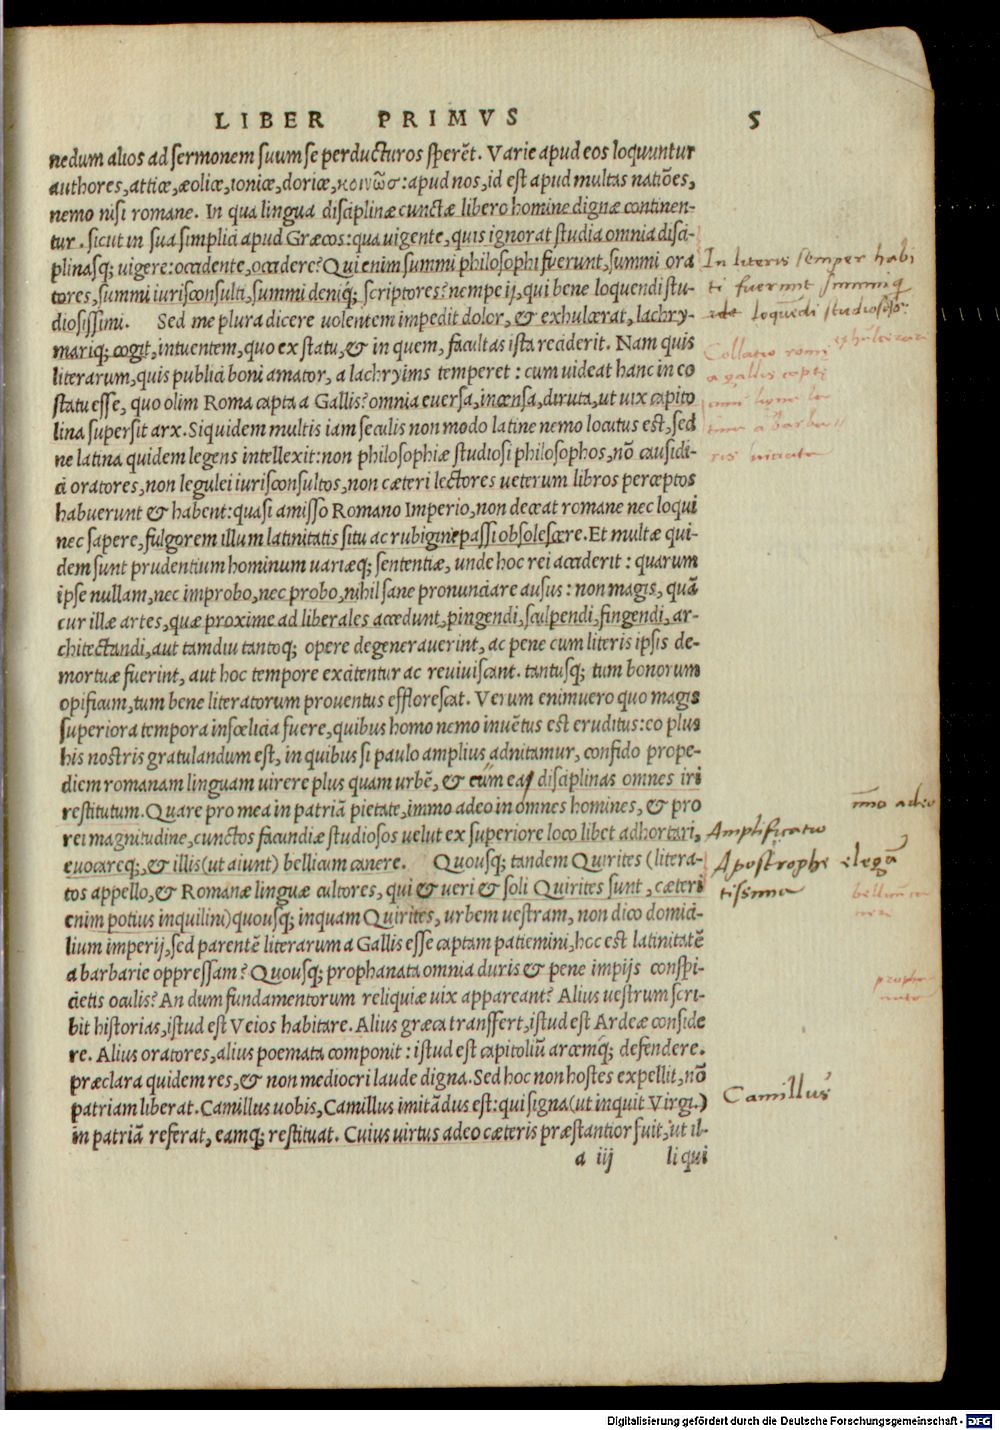 LIBER PRIMVS 5
nedum alios ad sermonem suum se perducturos sperēt. Varie apud eos loquuntur
authores, atticæ, æolicæ, ionicæ, doricæ, κοινῶσ: apud nos, id est apud multas natiōes,
nemo nisi romane. In qua lingua disciplinæ cunctæ libero homine dignæ continen-
tur. sicut in sua simplici apud Græcos: qua uigente, quis ignorat studia omnia disci-
plinasq; uigere: occidente, occidere? Qui enim summi philosophi fuerunt, summi ora
tores, summi iurisconsulti, summi deniq; scriptores? nempe ij, qui bene loquendi stu-
diosissimi. Sed me plura dicere uolentem impedit dolor, & exhulcerat, lachry-
mariq; cogit, intuentem, quo ex statu, & in quem, facultas ista reciderit. Nam quis
literarum, quis publici boni amator, a lachryims temperet: cum uideat hanc in eo
statu esse, quo olim Roma capta a Gallis? omnia euersa, incensa, diruta, ut uix capito
lina supersit arx. Siquidem multis iam seculis non modo latine nemo locutus est, sed
ne latina quidem legens intellexit: non philosophiæ studiosi philosophos, nō causidi-
ci oratores, non legulei iurisconsultos, non cæteri lectores ueterum libros perceptos
habuerunt & habent: quasi amisso Romano Imperio, non deceat romane nec loqui
nec sapere, fulgorem illum latinitatis situ ac rubigine passi obsolescere. Et multæ qui-
dem sunt prudentium hominum uariæq; sententiæ, unde hoc rei acciderit: quarum
ipse nullam, nec improbo, nec probo, nihil sane pronunciare ausus: non magis, quā
cur illæ artes, quæ proxime ad liberales accedunt, pingendi, sculpendi, fingendi, ar-
chitectandi, aut tamdiu tantoq; opere degenerauerint, ac pene cum literis ipsis de-
mortuæ fuerint, aut hoc tempore excitentur ac reuiuiscant. tantusq; tum bonorum
opificum, tum bene literatorum prouentus efflorescat. Verum enimuero quo magis
superiora tempora infœlicia fuere, quibus homo nemo inuētus est eruditus: eo plus
his nostris gratulandum est, in quibus si paulo amplius adnitamur, confido prope-
diem romanam linguam uirere plus quam urbē, & cum ea disciplinas omnes iri
restitutum. Quare pro mea in patriā pietate, immo adeo in omnes homines, & pro
rei magnitudine, cunctos facundiæ studiosos uelut ex superiore loco libet adhortari,
euocareq;, & illis (ut aiunt) bellicum canere. Quousq; tandem Quirites (litera-
tos appello, & Romanæ linguæ cultores, qui & ueri & soli Quirites sunt, cæteri
enim potius inquilini) quousq; inquam Quirites, urbem uestram, non dico domici-
lium imperij, sed parentē literarum a Gallis esse captam patiemini, hoc est latinitatē
a barbarie oppressam? Quousq; prophanata omnia duris & pene impijs conspi-
cietis oculis? An dum fundamentorum reliquiæ uix appareant? Alius uestrum scri-
bit historias, istud est Veios habitare. Alius græca transfert, istud est Ardeæ conside
re. Alius oratores, alius poemata componit: istud est capitoliū arcemq; defendere.
præclara quidem res, & non mediocri laude digna. Sed hoc non hostes expellit, nō
patriam liberat. Camillus uobis, Camillus imitādus est: qui signa (ut inquit Virgi.)
in patriā referat, eamq; restituat. Cuius uirtus adeo cæteris præstantior fuit, ut il-
a iij li qui
In literis semper habi
ti fuerunt summiq
loquēdi studiosos
exhulcerare
Collatio rome
a gallis capte
cum ligua la
tina a barba
ris uiciata
īmo adeo
Amplificatio
Apostrophe elegā
tissima
bellicum ca
nere
propha
nata
Camillus
Digitalisierung gefördert durch die Deutsche Forschungsgemeinschaft - DFG